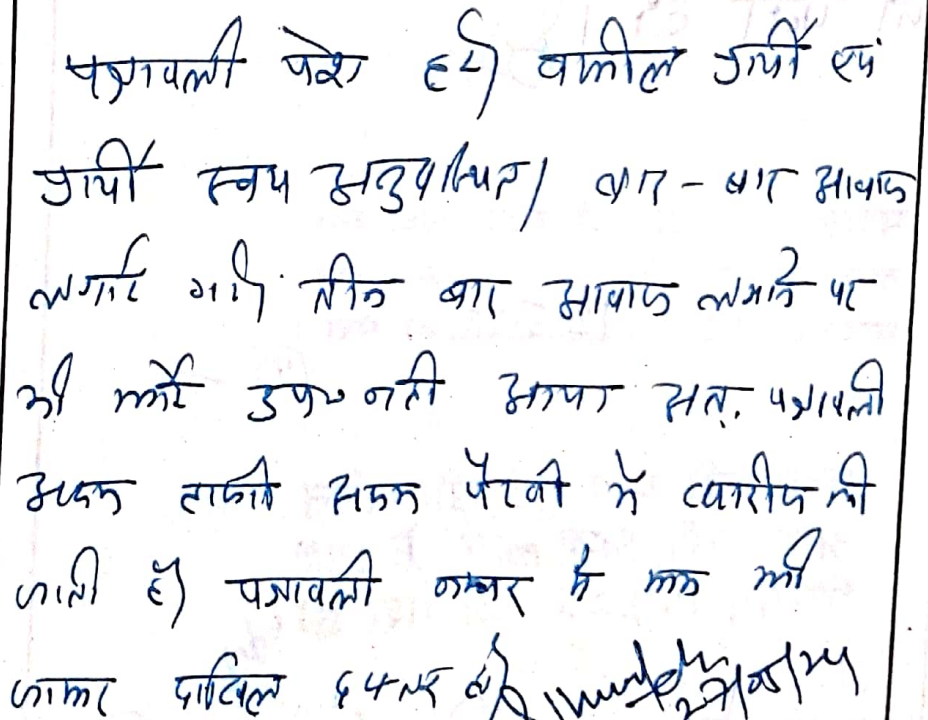 पत्रावली पेश हुई। वकील प्रार्थी एवं
प्रार्थी स्वयं अनुपस्थित। बार - बार आवाज
लगाई गयी। तीन बार आवाज लगाने पर
भी कोई उप० नही आया अत. पत्रावली
अदम हाजरी अदम पैरवी में खारीज की
जाती है। पत्रावली नम्बर से कम की
जाकर दाखिल दफ्तर हो।